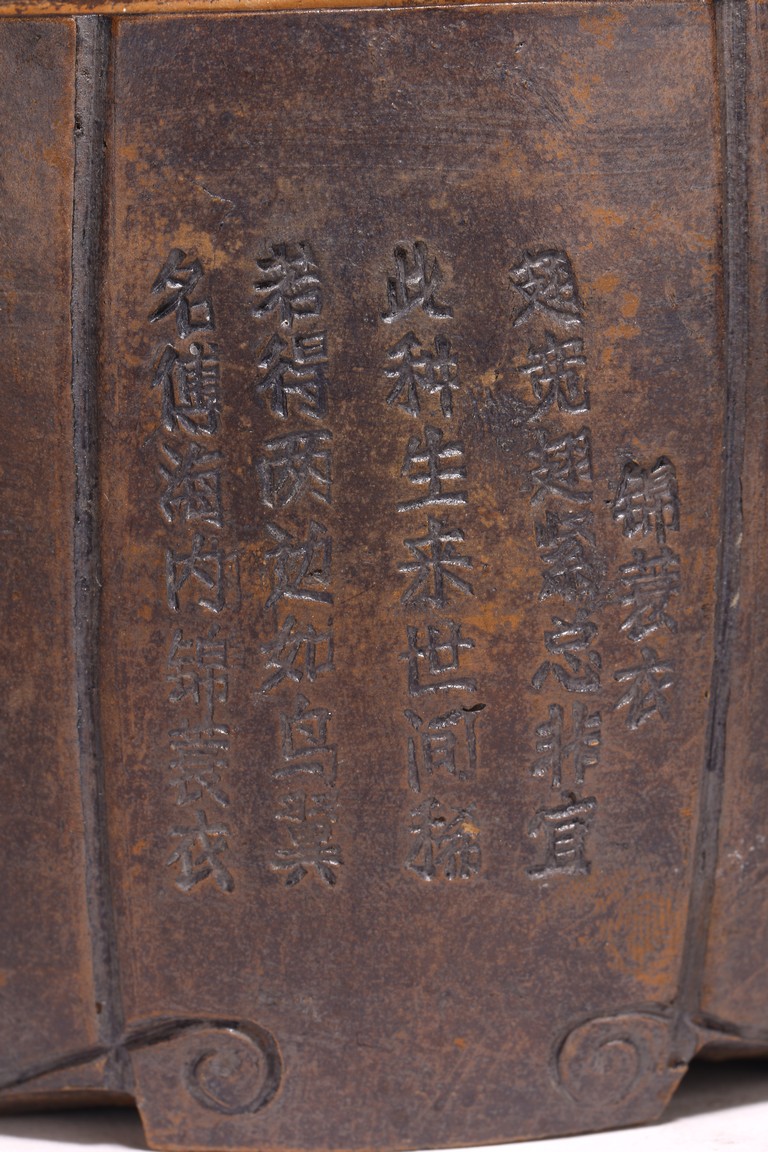 锦蓑衣
翅宽翅紧总非宜
此种生来世间稀
若得两边如鸟翼
名傳海内锦蓑衣